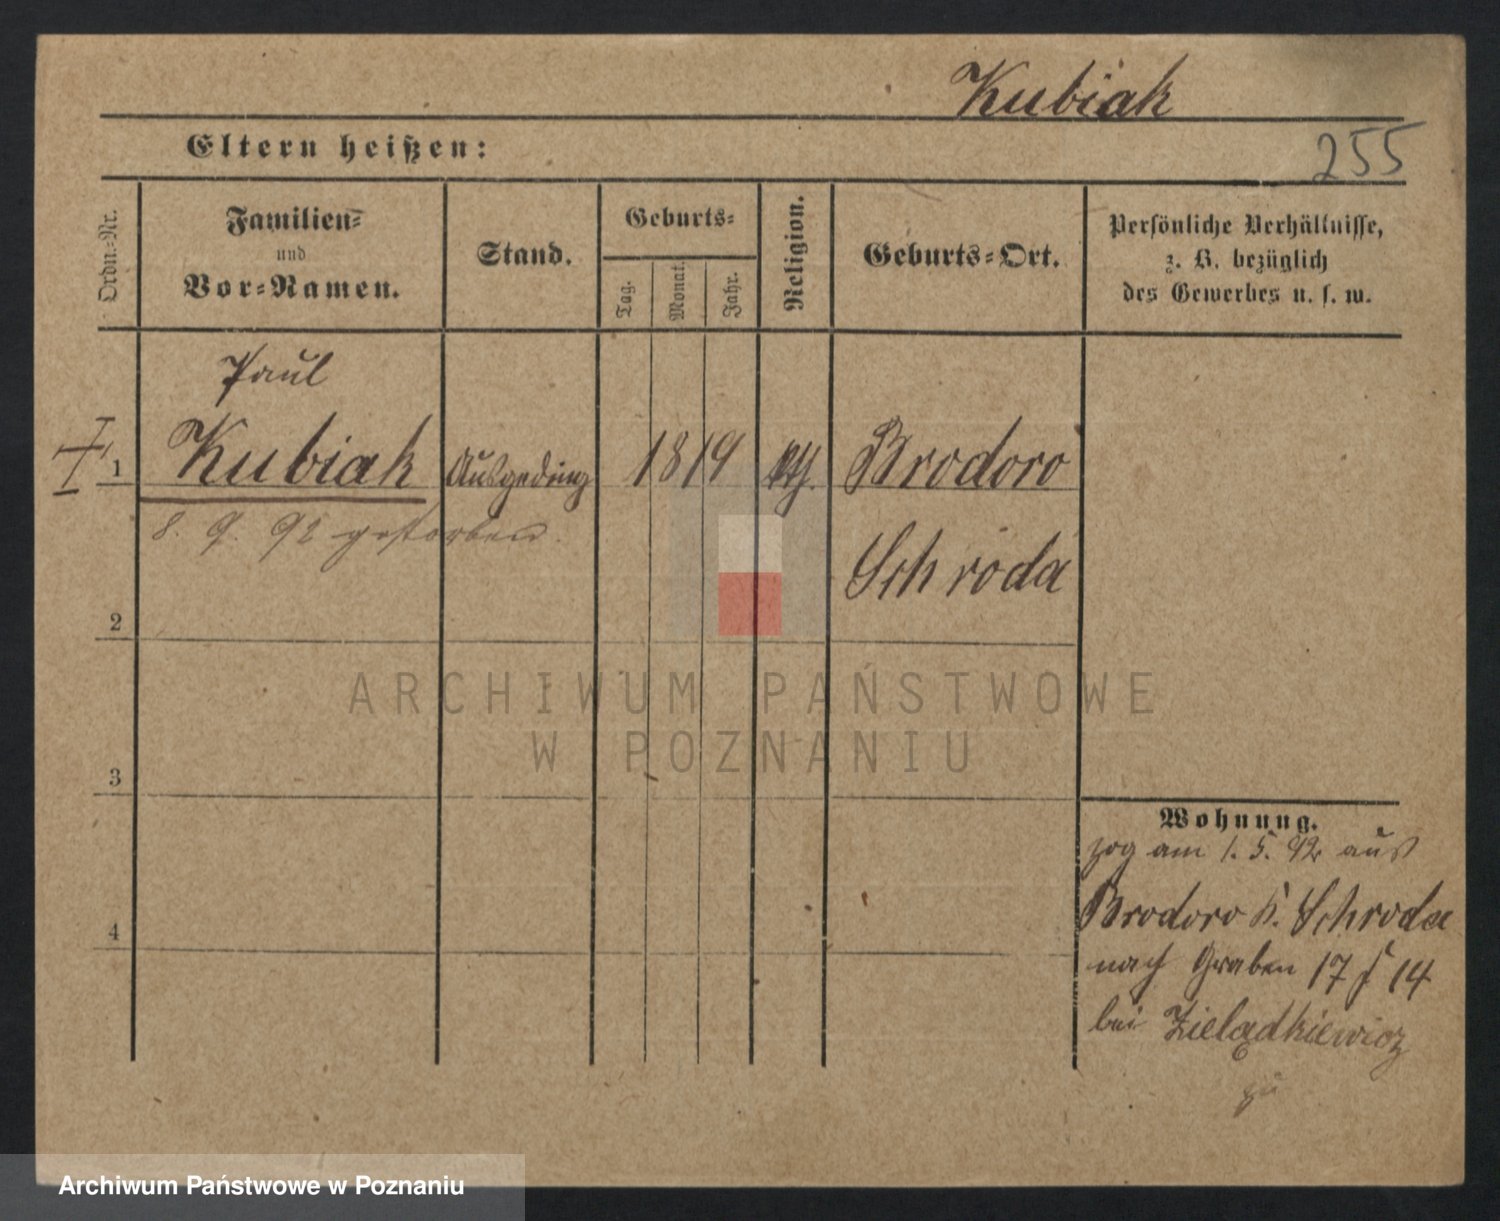 Kubiak
255
Eltern heißen:
Ordn.=Nr.
Familien=
und
Vor=Namen.
Stand.
Geburts=
Tag.
Monat.
Jahr.
Religion.
Geburts=Ort.
Persönliche Verhältnisse,
z. B. bezüglich
des Gewerbes u. s. w.
Paul
1 Kubiak Ausgeding 1819 kth. Brodowo
8. 9. 92 gestorben.
Schroda
2
3
4
Wohnung.
zog am 1. 5. 92 aus
Brodowo K. Schroda
nach Graben 17 14
bei Zielądkiewicz
zu
ARCHIWUM PAŃSTWOWE
W POZNANIU
Archiwum Państwowe w Poznaniu